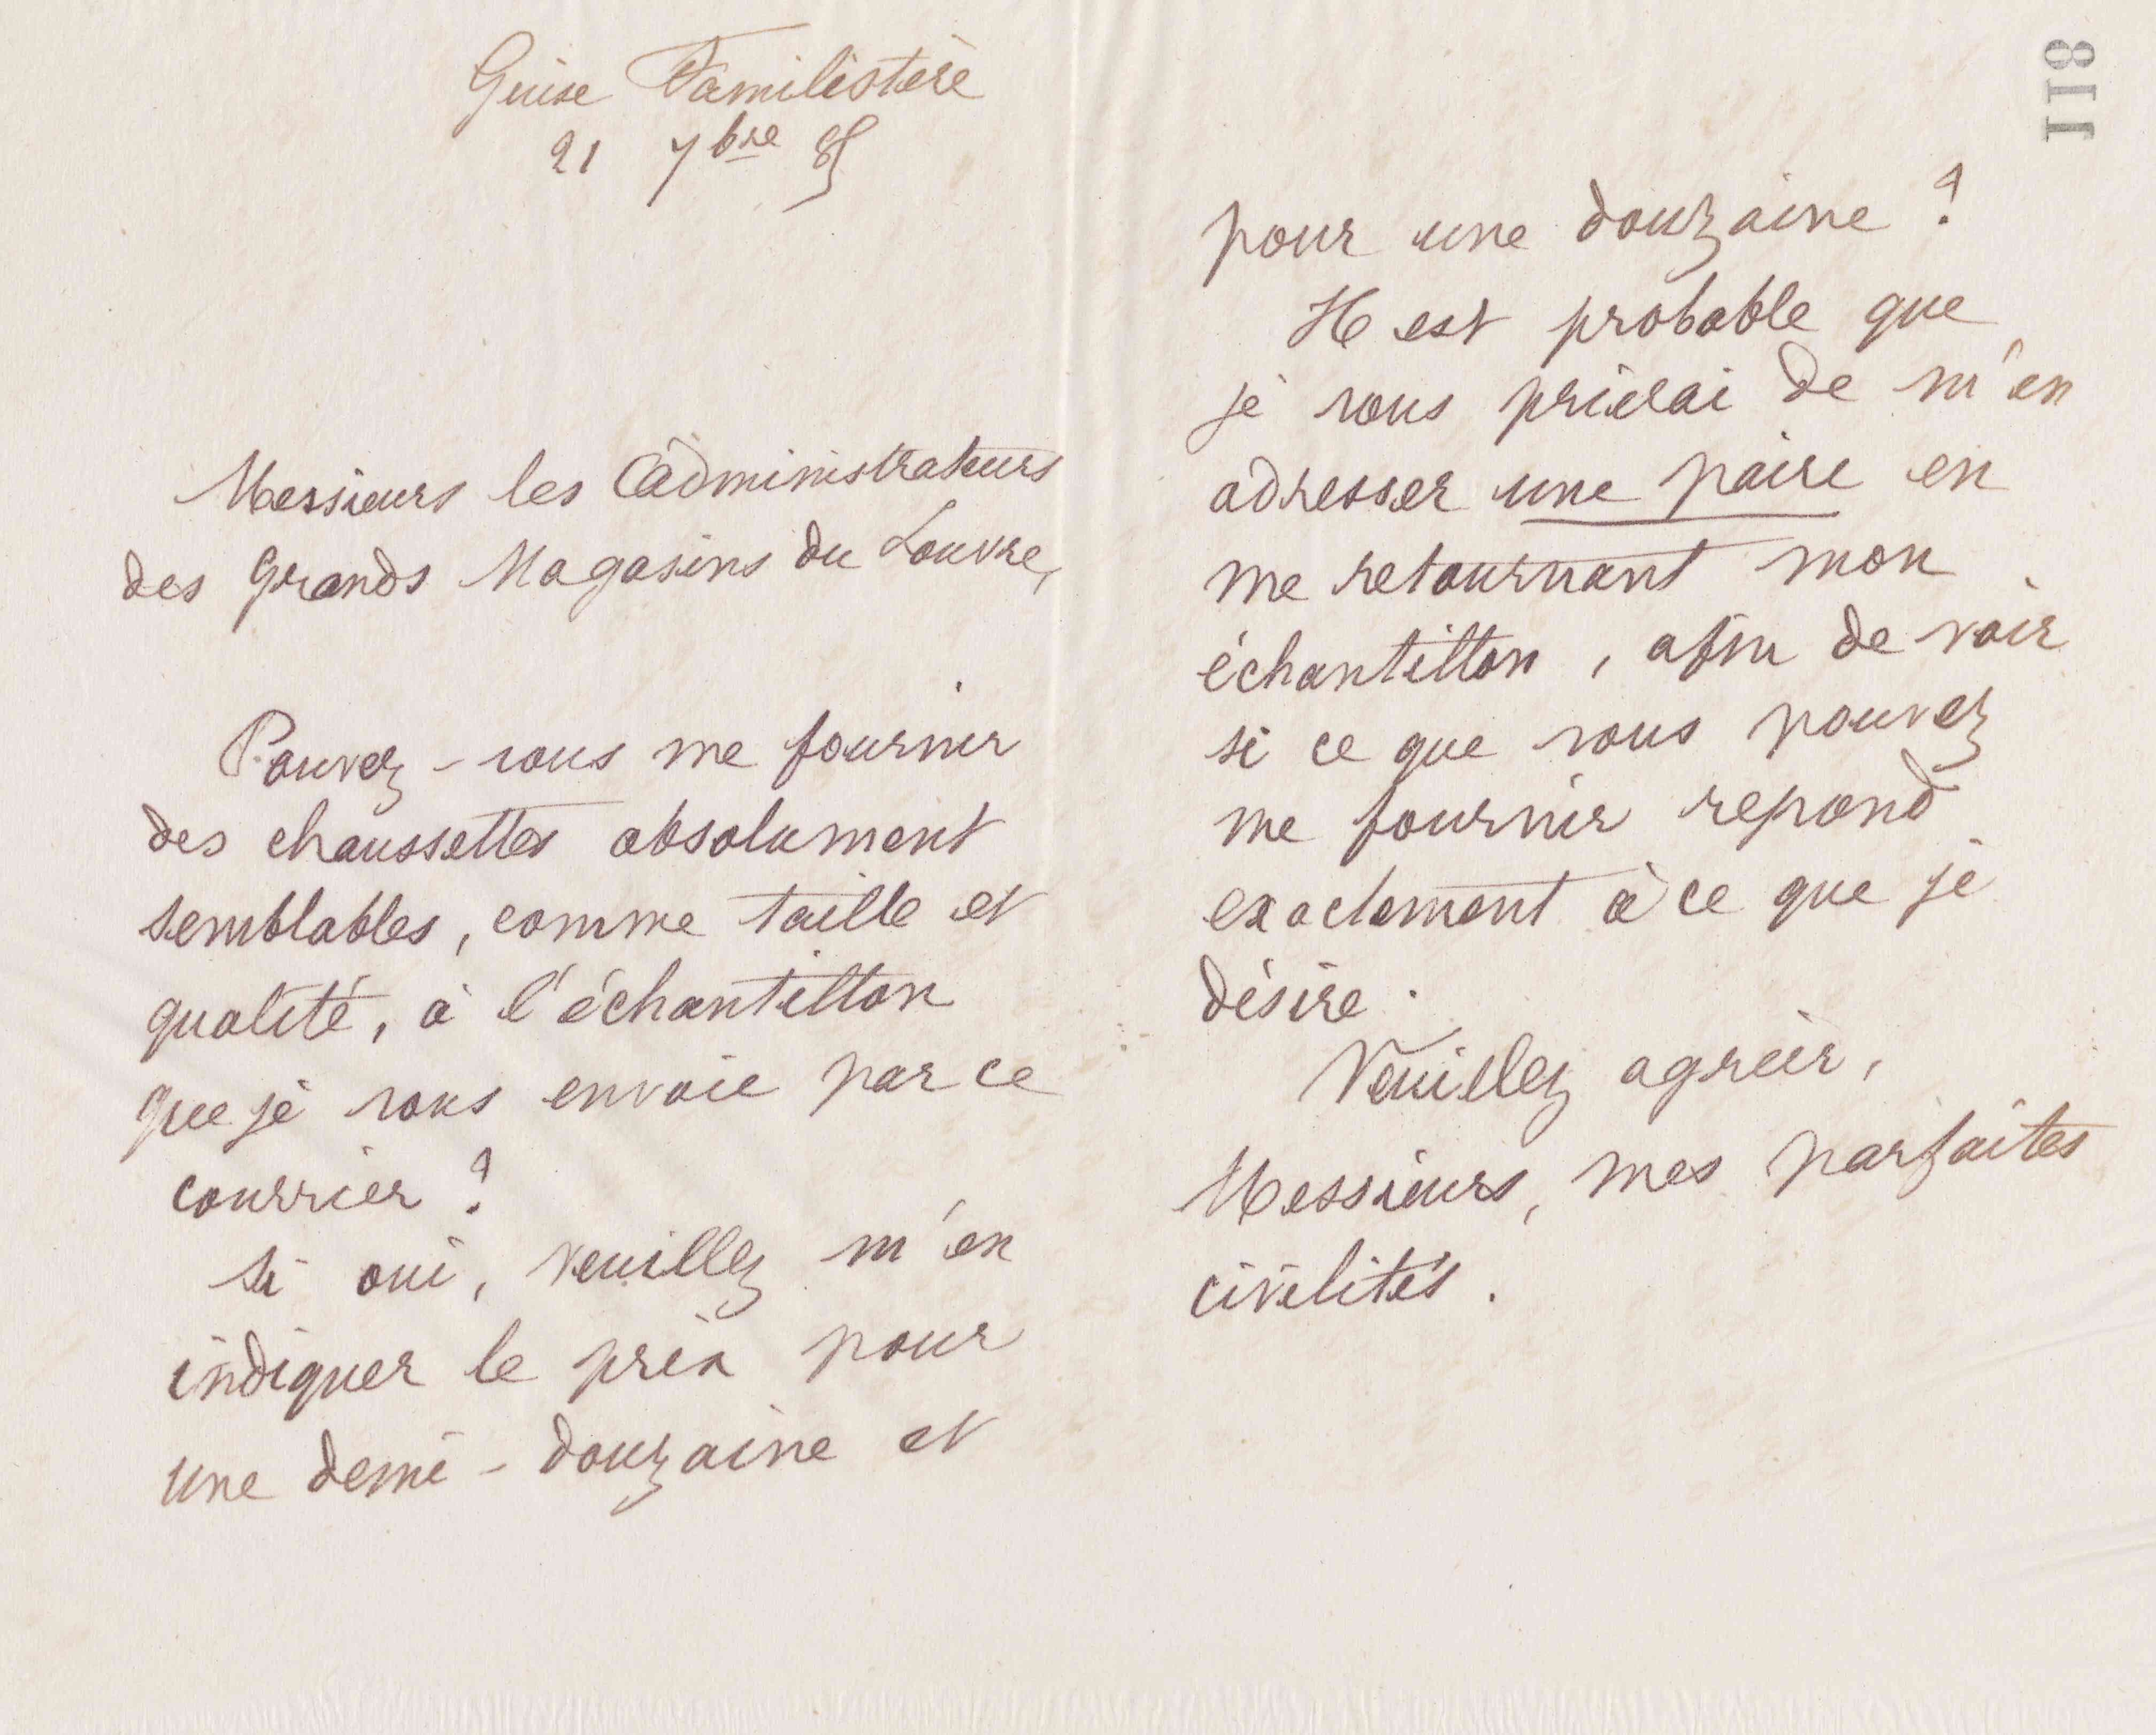 Guise Familistère
21 7bre 85
Messieurs les Administrateurs
des Grands Magasins du Louvre,
Pouvez-vous me fournir
des chaussettes absolument
semblables, comme taille et
qualité, à l'échantillon
que je vous envoie par ce
courrier ?
Si oui, veuillez m'en
indiquer le prix pour
une demi-douzaine et
118
pour une douzaine ?
Il est probable que
je vous prierai de m'en
adresser une paire en
me retournant mon
échantillon, afin de voir
si ce que vous pouvez
me fournir répond
exactement à ce que je
désire.
Veuillez agréer,
Messieurs, mes parfaites
civilités.